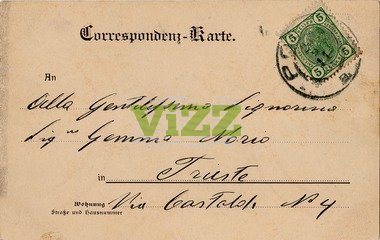 Correspondenz-Karte.
5 5
5 5
An
Alla Gentilissima Signorina
Sig.na Gemma Norio
ViZZ
in Trieste
Wohnung
Straße und Hausnummer
Via Castaldi N 4